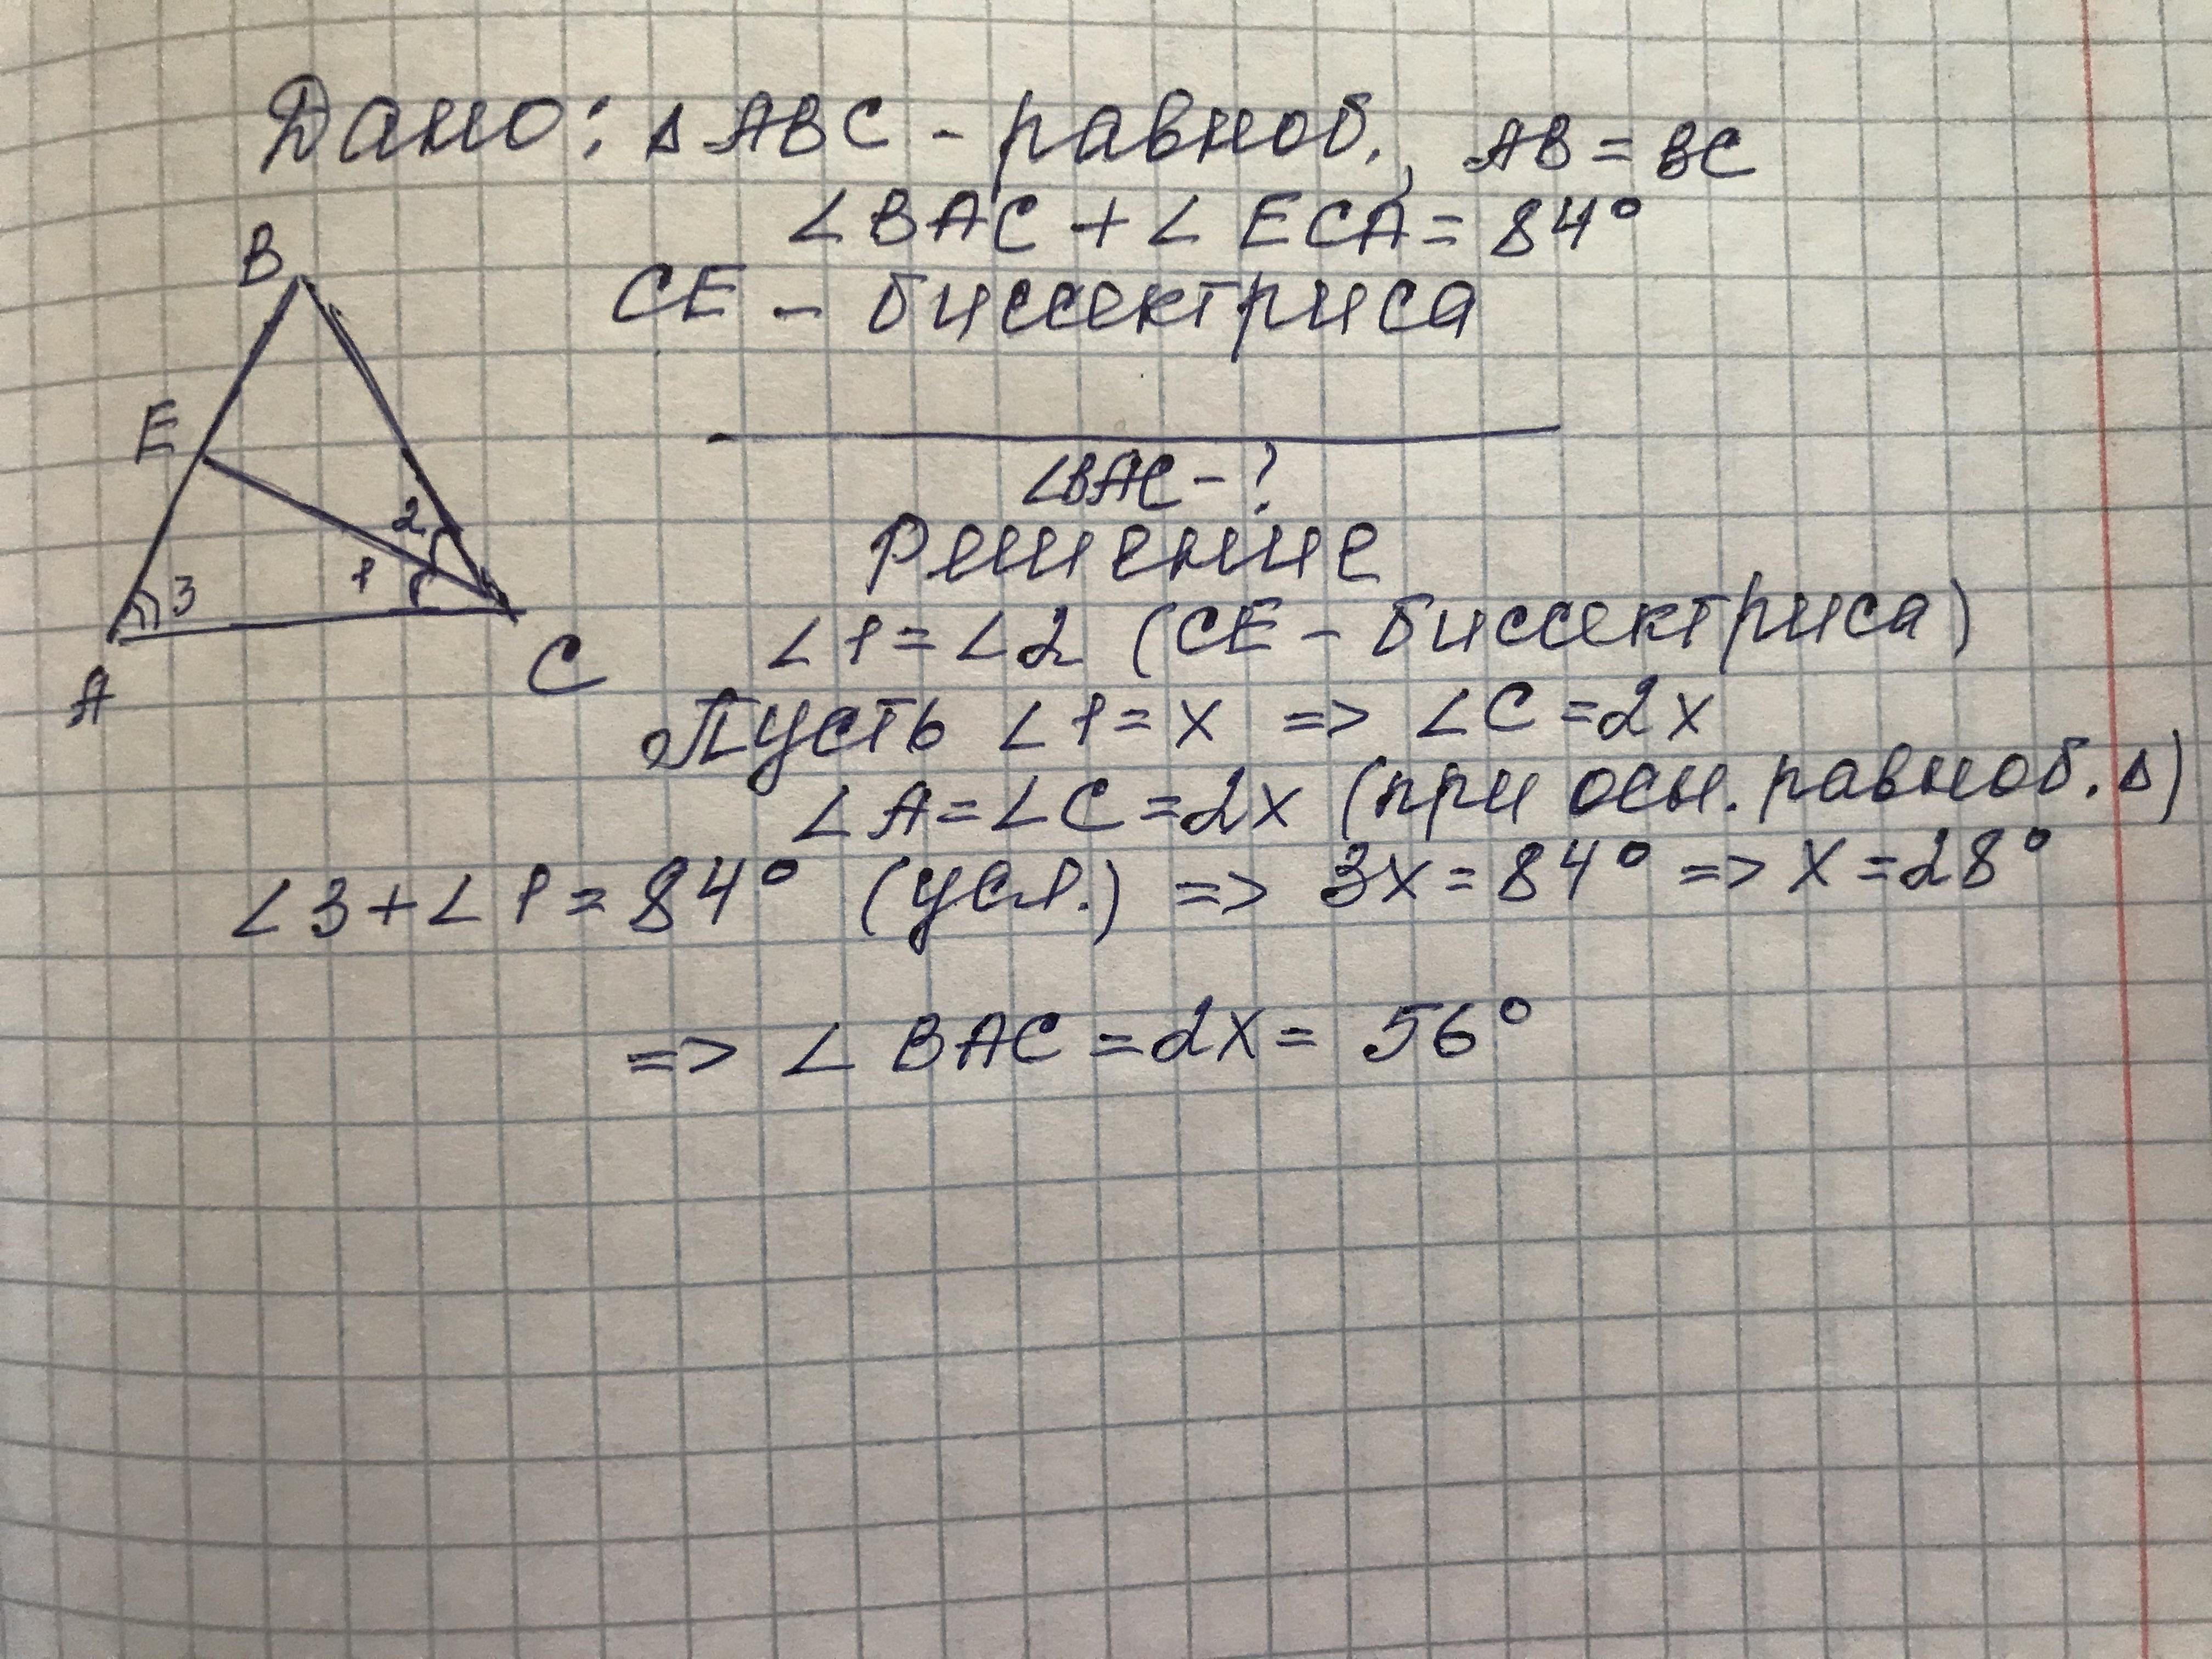 Дано: △ABC - равноб., AB = BC
∠BAC + ∠ECA = 84°
CE - биссектриса
B
E
2
1
3
A
C
∠BAC - ?
Решение
∠1 = ∠2 (CE - биссектриса)
Пусть ∠1 = x => ∠C = 2x
∠A = ∠C = 2x (при осн. равноб. △)
∠3 + ∠1 = 84° (усл.) => 3x = 84° => x = 28°
=> ∠BAC = 2x = 56°